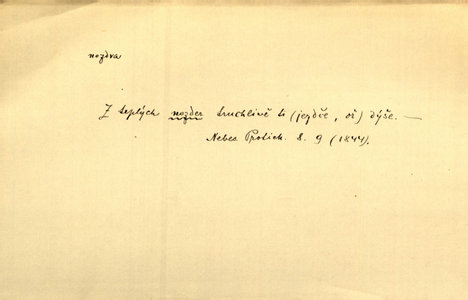 nozdra
Z teplých nozder truchlivě ti (jezdče, oř) dýše. —
Nebes. Protich. s. 9 (1844).